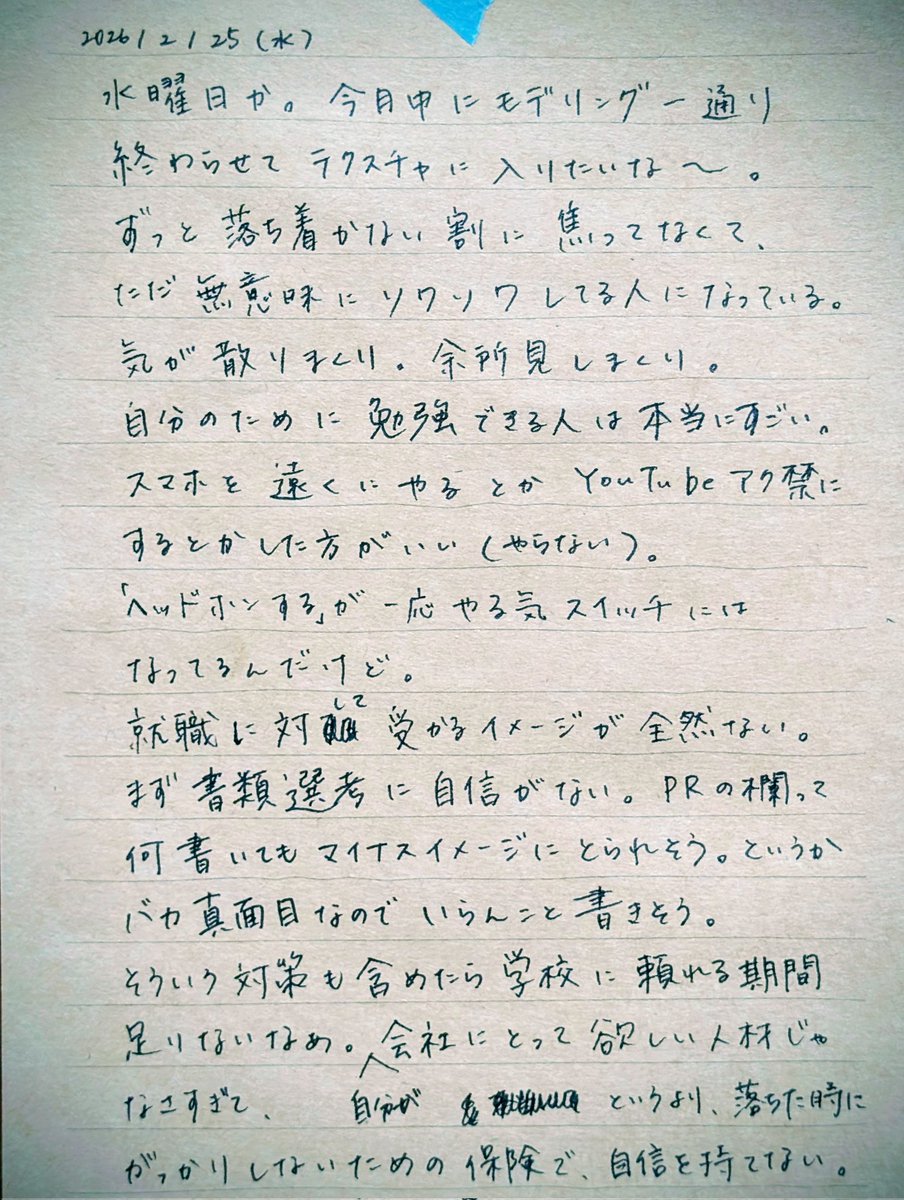 2026/2/25(水)
水曜日か。今月中にモデリング一通り
終わらせてテクスチャに入りたいな〜。
ずっと落ち着かない割に焦ってなくて、
ただ無意味にソワソワしてる人になっている。
気が散りまくり。余所見しまくり。
自分のために勉強できる人は本当にすごい。
スマホを遠くにやるとかYouTubeアク禁に
するとかした方がいい(やらない)。
「ヘッドホンする」が一応やる気スイッチには
なってるんだけど。
就職に対して受かるイメージが全然ない。
まず書類選考に自信がない。PRの欄って
何書いてもマイナスイメージにとられそう。というか
バカ真面目なのでいらんこと書きそう。
そういう対策も含めたら学校に頼れる期間
足りないなぁ。自分が会社にとって欲しい人材じゃ
なさすぎて、というより、落ちた時に
がっかりしないための保険で、自信を持てない。